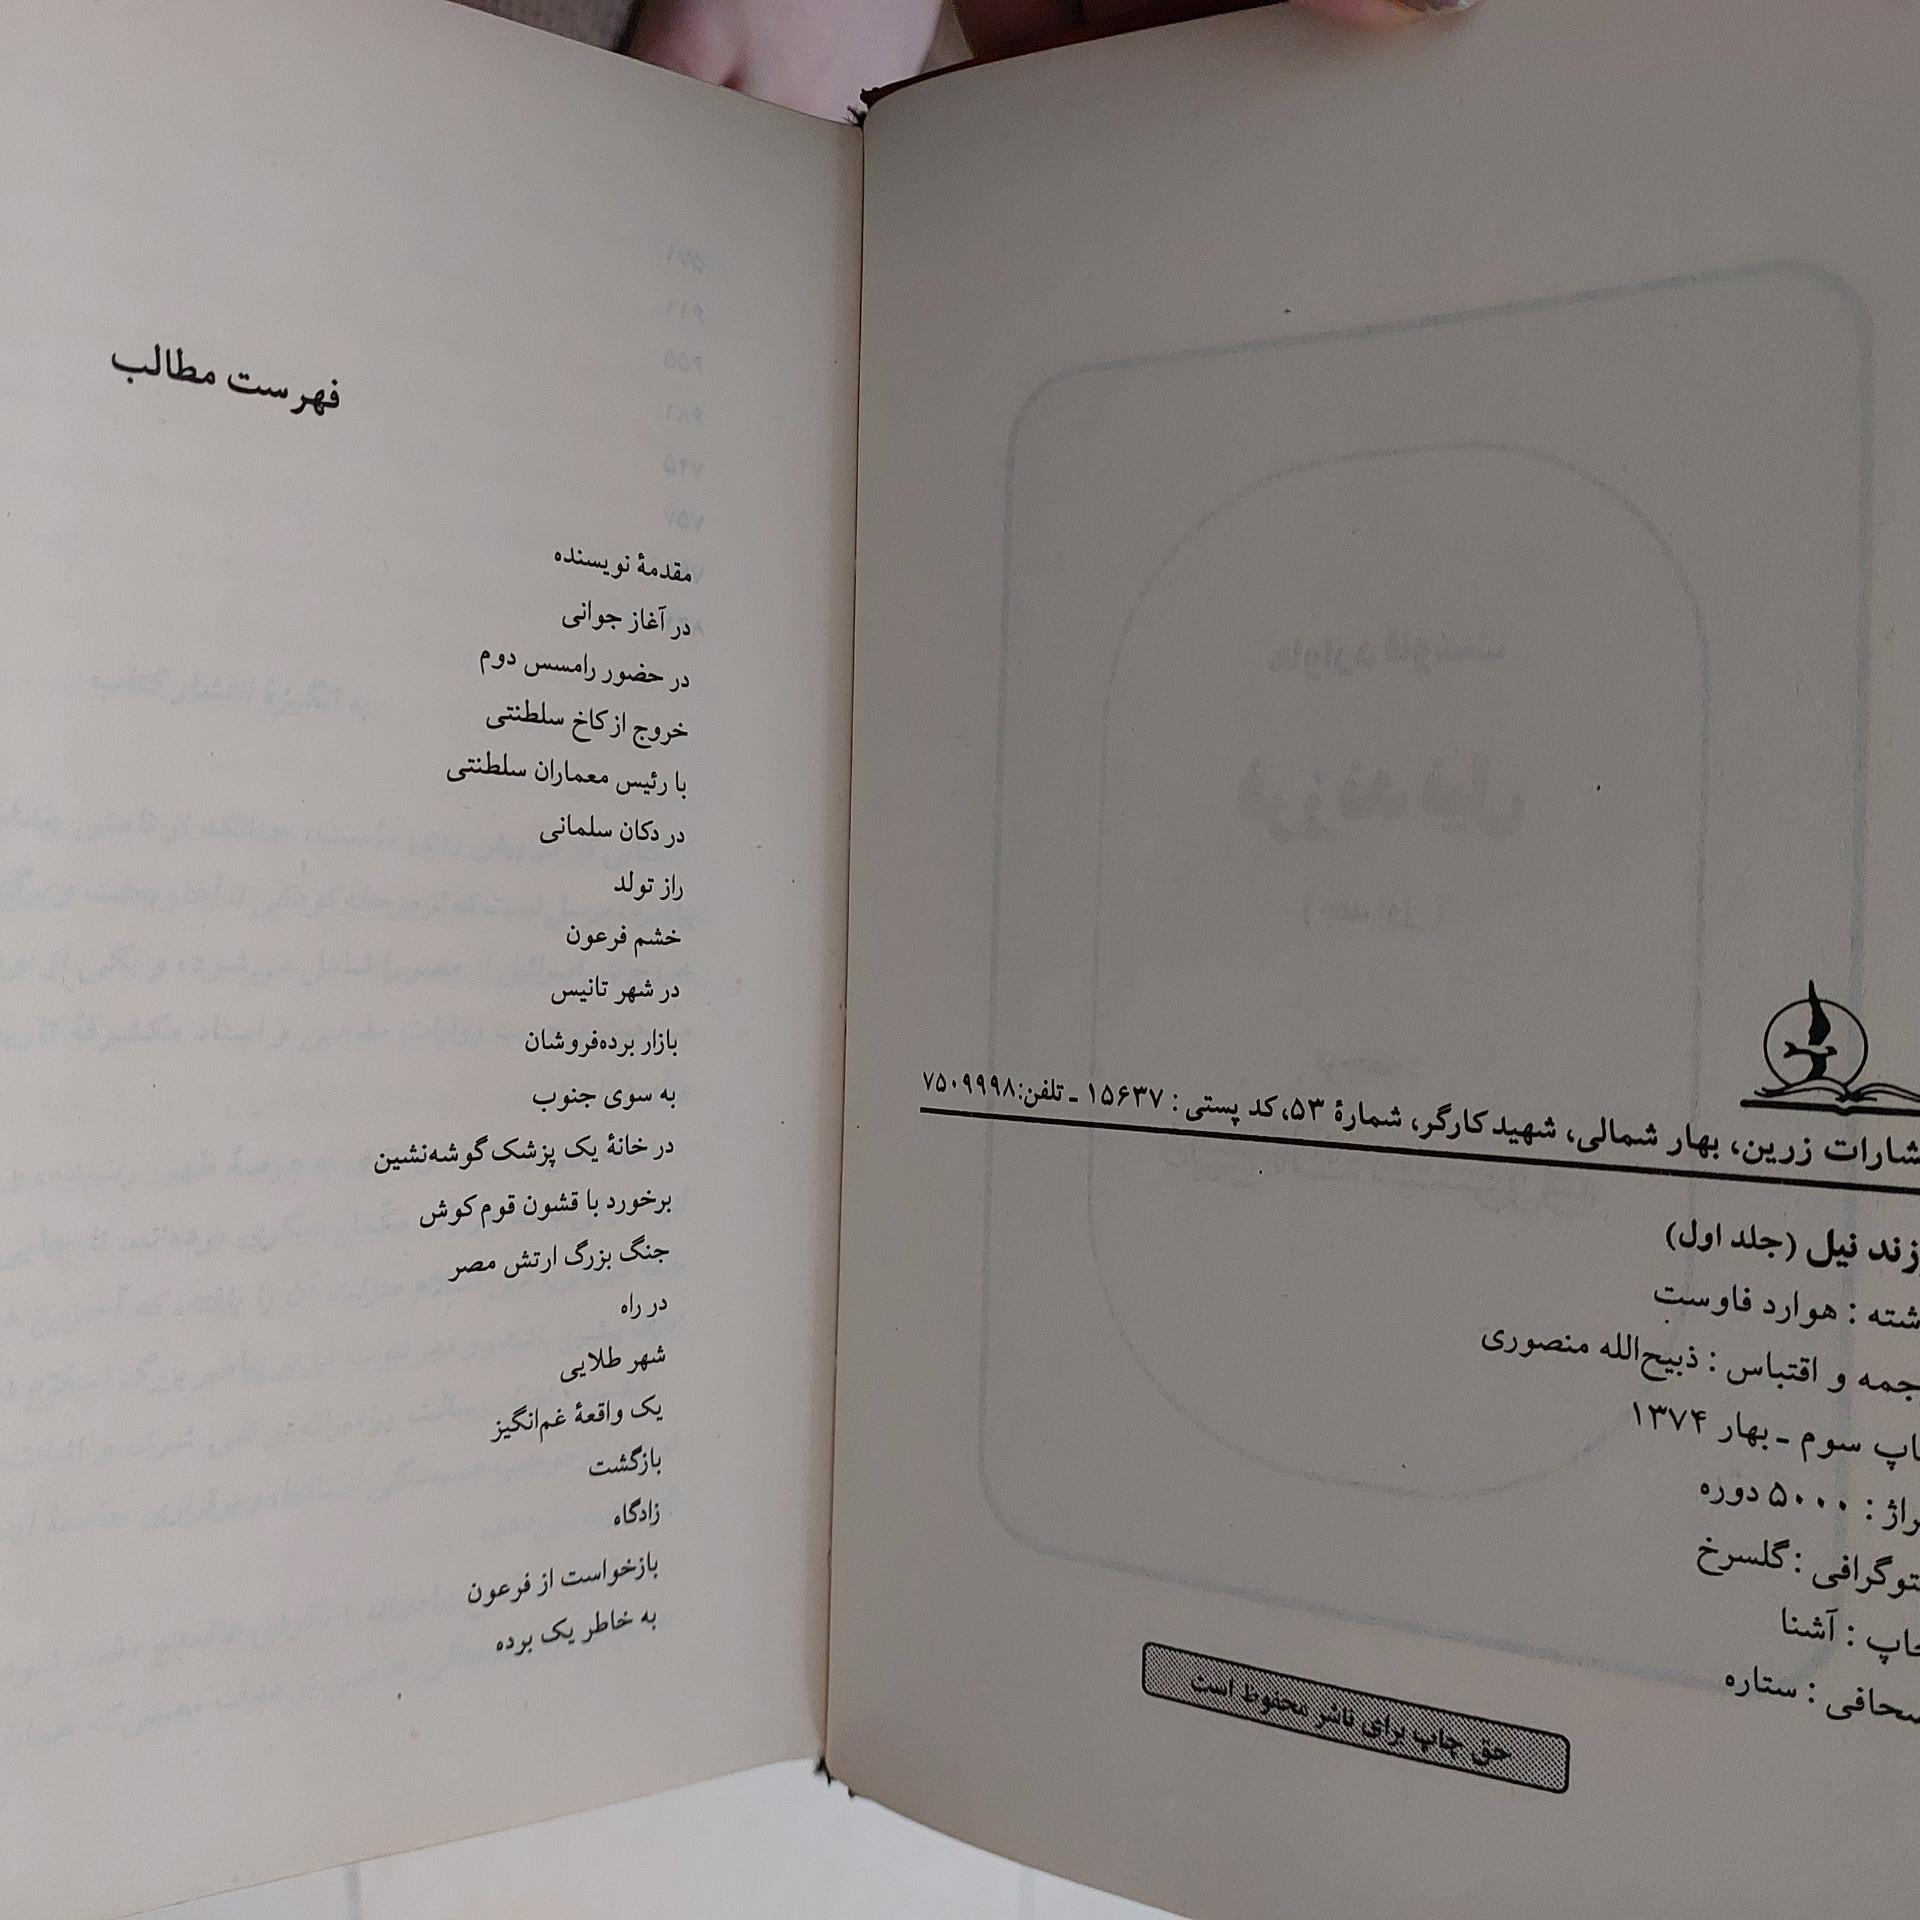 شارات زرین، بهار شمالی، شهید کارگر، شمارهٔ ۵۳، کد پستی : ۱۵۶۳۷ ـ تلفن: ۷۵۰۹۹۹۸
زند نیل (جلد اول)
شته : هوارد فاوست
جمه و اقتباس : ذبیح‌الله منصوری
اپ سوم ـ بهار ۱۳۷۴
راژ : ۵۰۰۰ دوره
توگرافی : گلسرخ
اپ : آشنا
حافی : ستاره
حق چاپ برای ناشر محفوظ است
فهرست مطالب
مقدمهٔ نویسنده
در آغاز جوانی
در حضور رامسس دوم
خروج از کاخ سلطنتی
با رئیس معماران سلطنتی
در دکان سلمانی
راز تولد
خشم فرعون
در شهر تانیس
بازار برده‌فروشان
به سوی جنوب
در خانهٔ یک پزشک گوشه‌نشین
برخورد با قشون قوم کوش
جنگ بزرگ ارتش مصر
در راه
شهر طلایی
یک واقعهٔ غم‌انگیز
بازگشت
زادگاه
بازخواست از فرعون
به خاطر یک برده